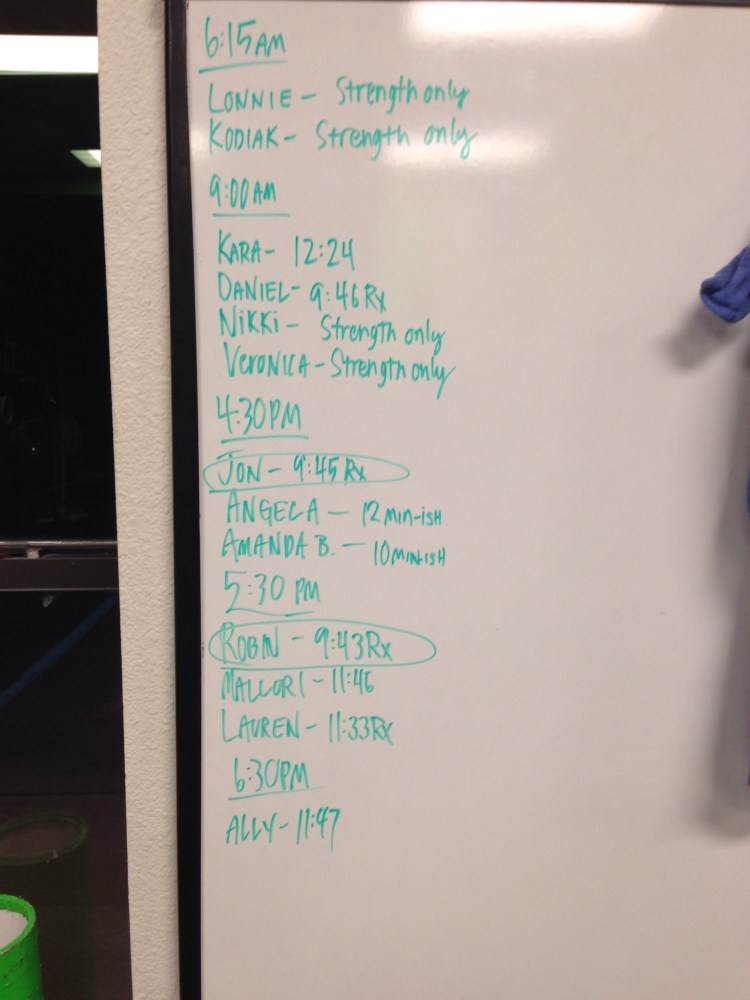 6:15AM
LONNIE - Strength only
KODIAK - Strength only
9:00AM
KARA - 12:24
DANIEL - 9:46 Rx
NIKKI - Strength only
VERONICA - Strength only
4:30PM
JON - 9:45 Rx
ANGELA - 12 MIN-ISH
AMANDA B. - 10 MIN-ISH
5:30 PM
ROBIN - 9:43 Rx
MALLORI - 11:46
LAUREN - 11:33 Rx
6:30PM
ALLY - 11:47